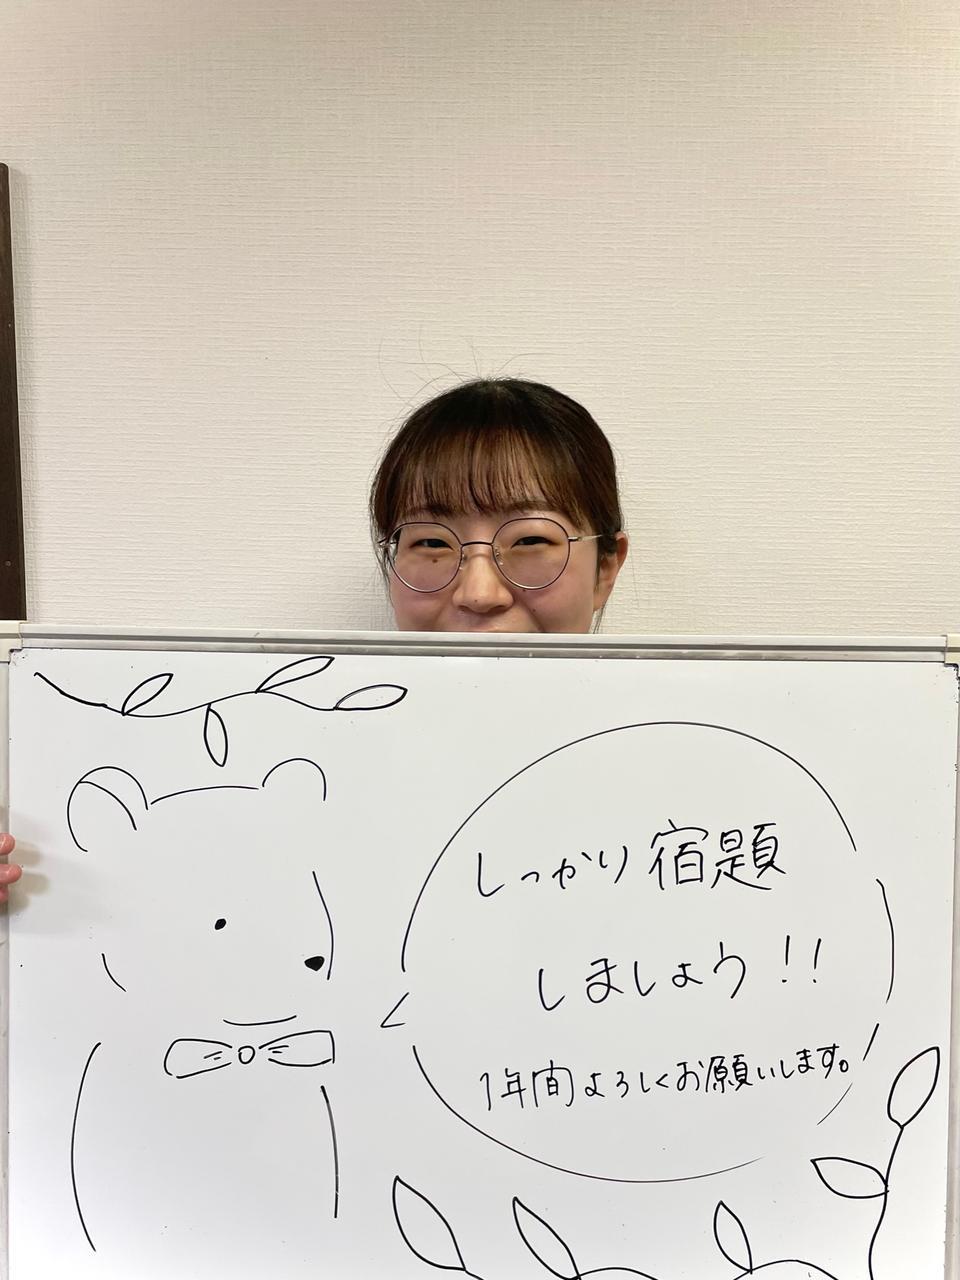 しっかり宿題
しましょう!!
1年間よろしくお願いします。